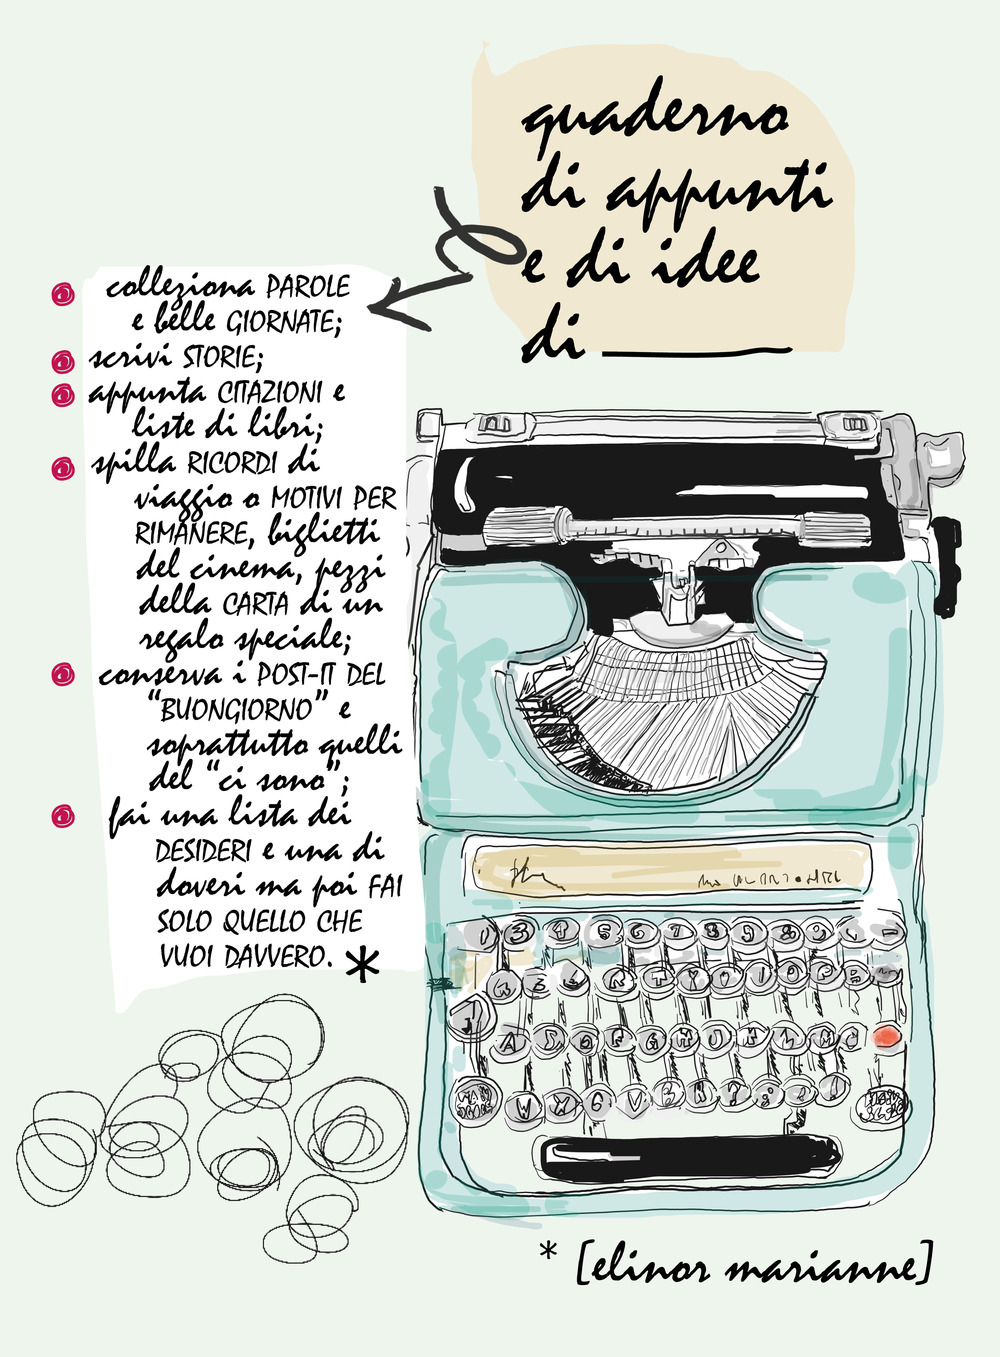 quaderno
di appunti
e di idee
di
colleziona PAROLE
e belle GIORNATE;
scrivi STORIE;
appunta CITAZIONI e
liste di libri;
spilla RICORDI di
viaggio o MOTIVI PER
RIMANERE, biglietti
del cinema, pezzi
della CARTA di un
regalo speciale;
conserva i POST-IT DEL
“BUONGIORNO” e
soprattutto quelli
del “ci sono”;
fai una lista dei
DESIDERI e una di
doveri ma poi FAI
SOLO QUELLO CHE
VUOI DAVVERO. *
* [elinor marianne]